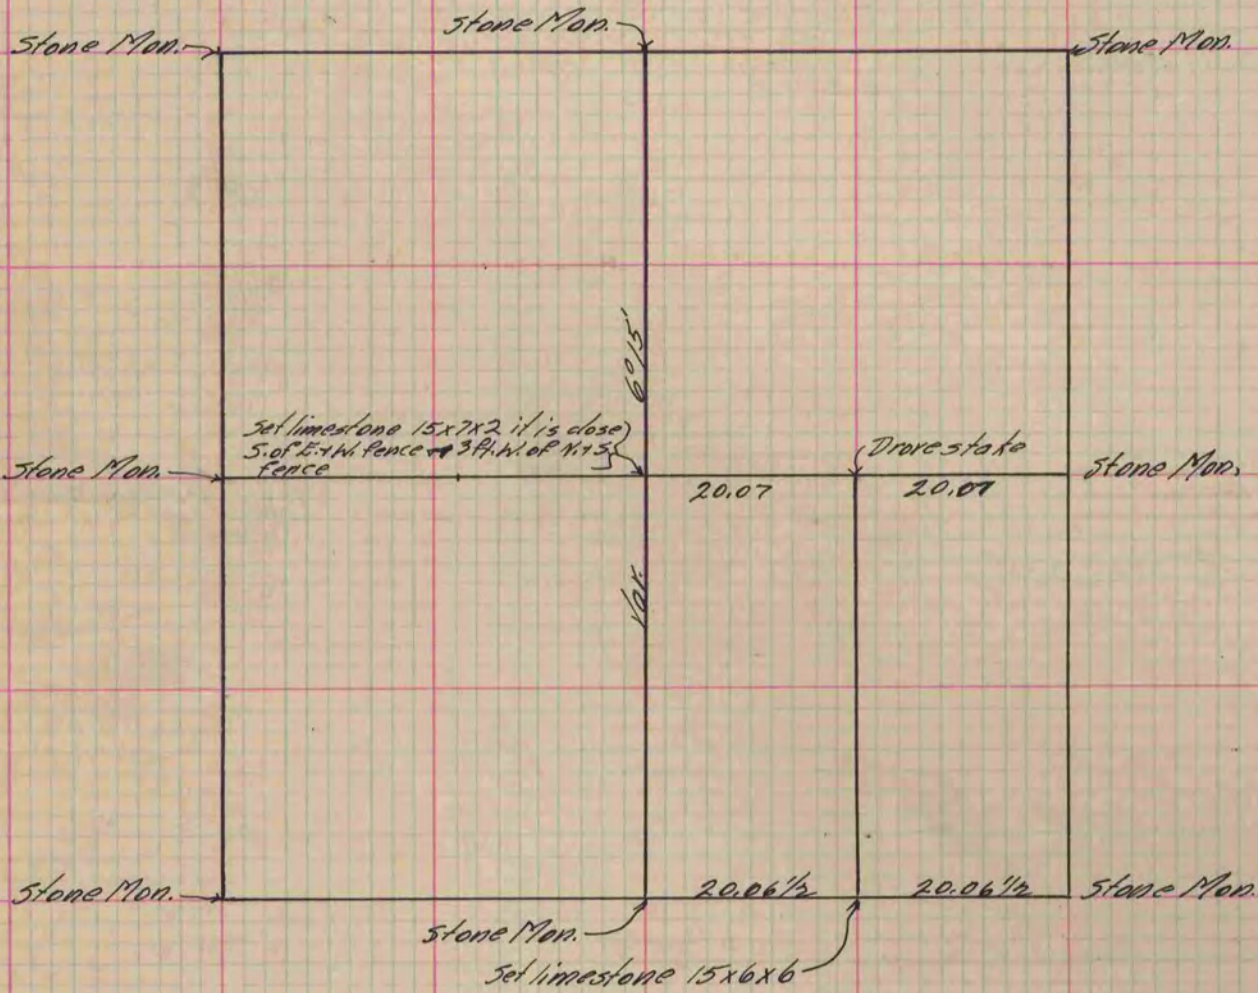 Stone Mon.
Stone Mon.
Stone Mon.
6°15'
Set limestone 15x7x2 it is close
S. of E.+W. fence + 3 ft. W. of N.+S.
fence
Drove stake
Stone Mon.
Stone Mon.
20.07
20.07
Var.
Stone Mon.
20.06 1/2
20.06 1/2
Stone Mon.
Stone Mon.
Set limestone 15x6x6